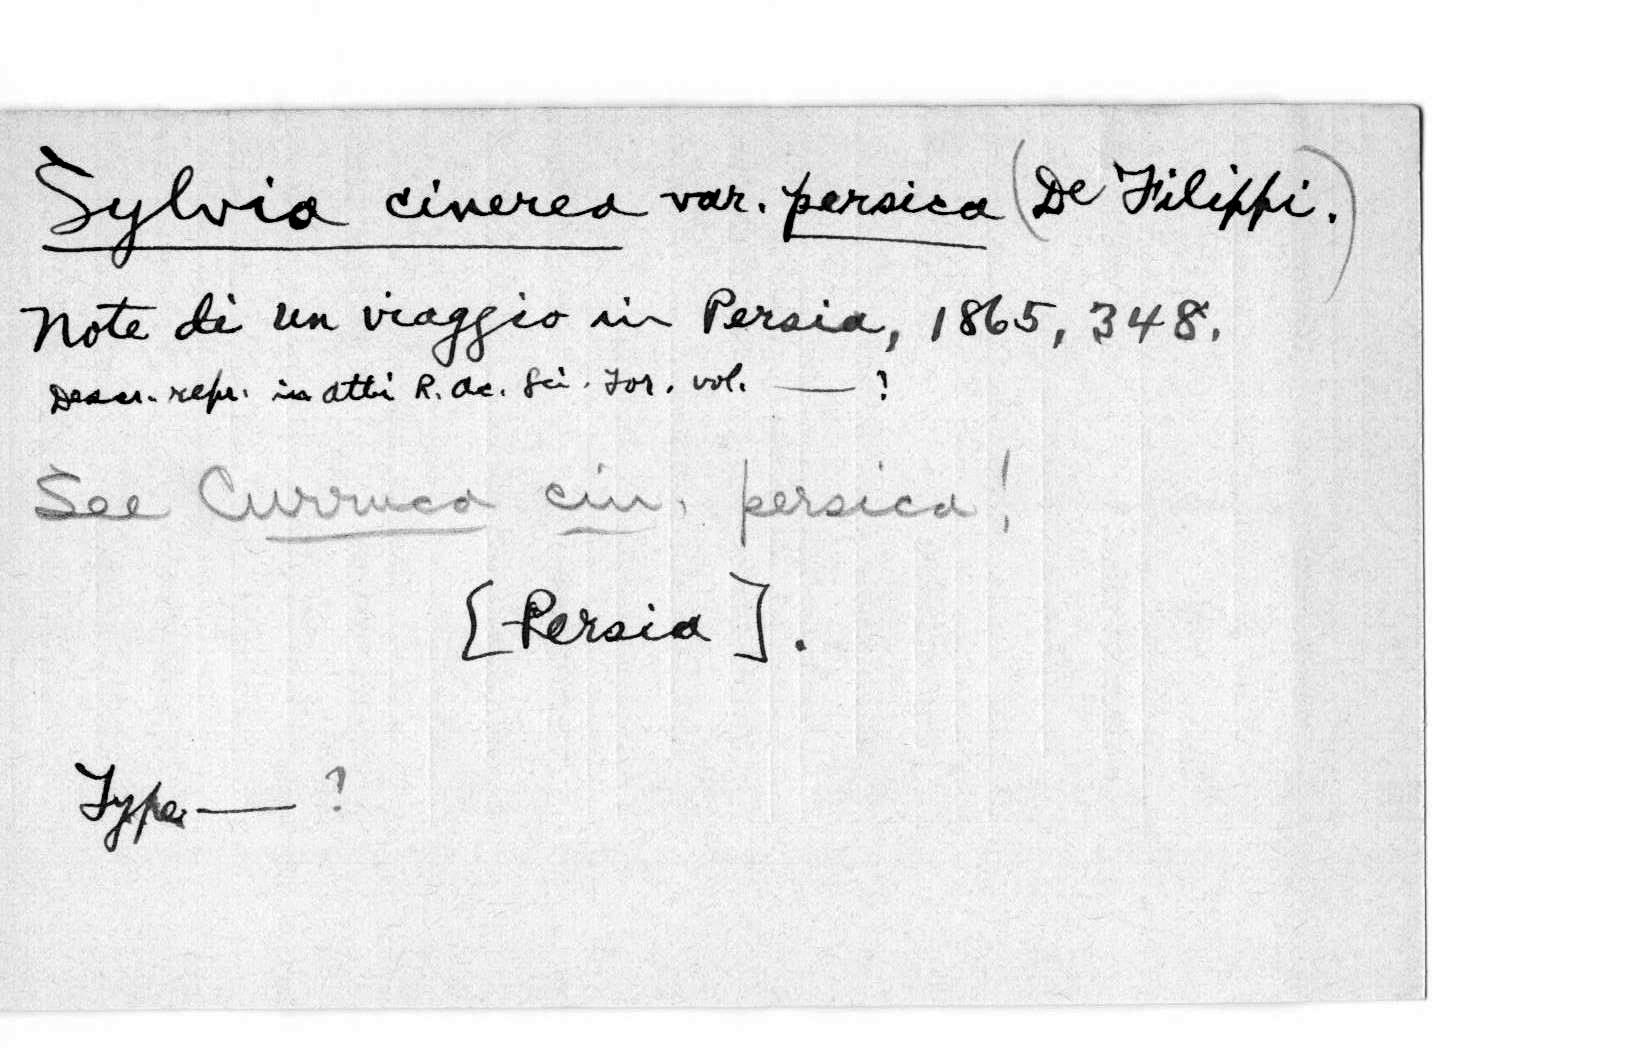 Sylvia cinerea var. persica (De Filippi.)
Note di un viaggio in Persia, 1865, 348.
Descr. repr. in Atti R. Ac. Sci. Tor. vol. — ?
See Curruca cin. persica!
[Persia].
Type — ?